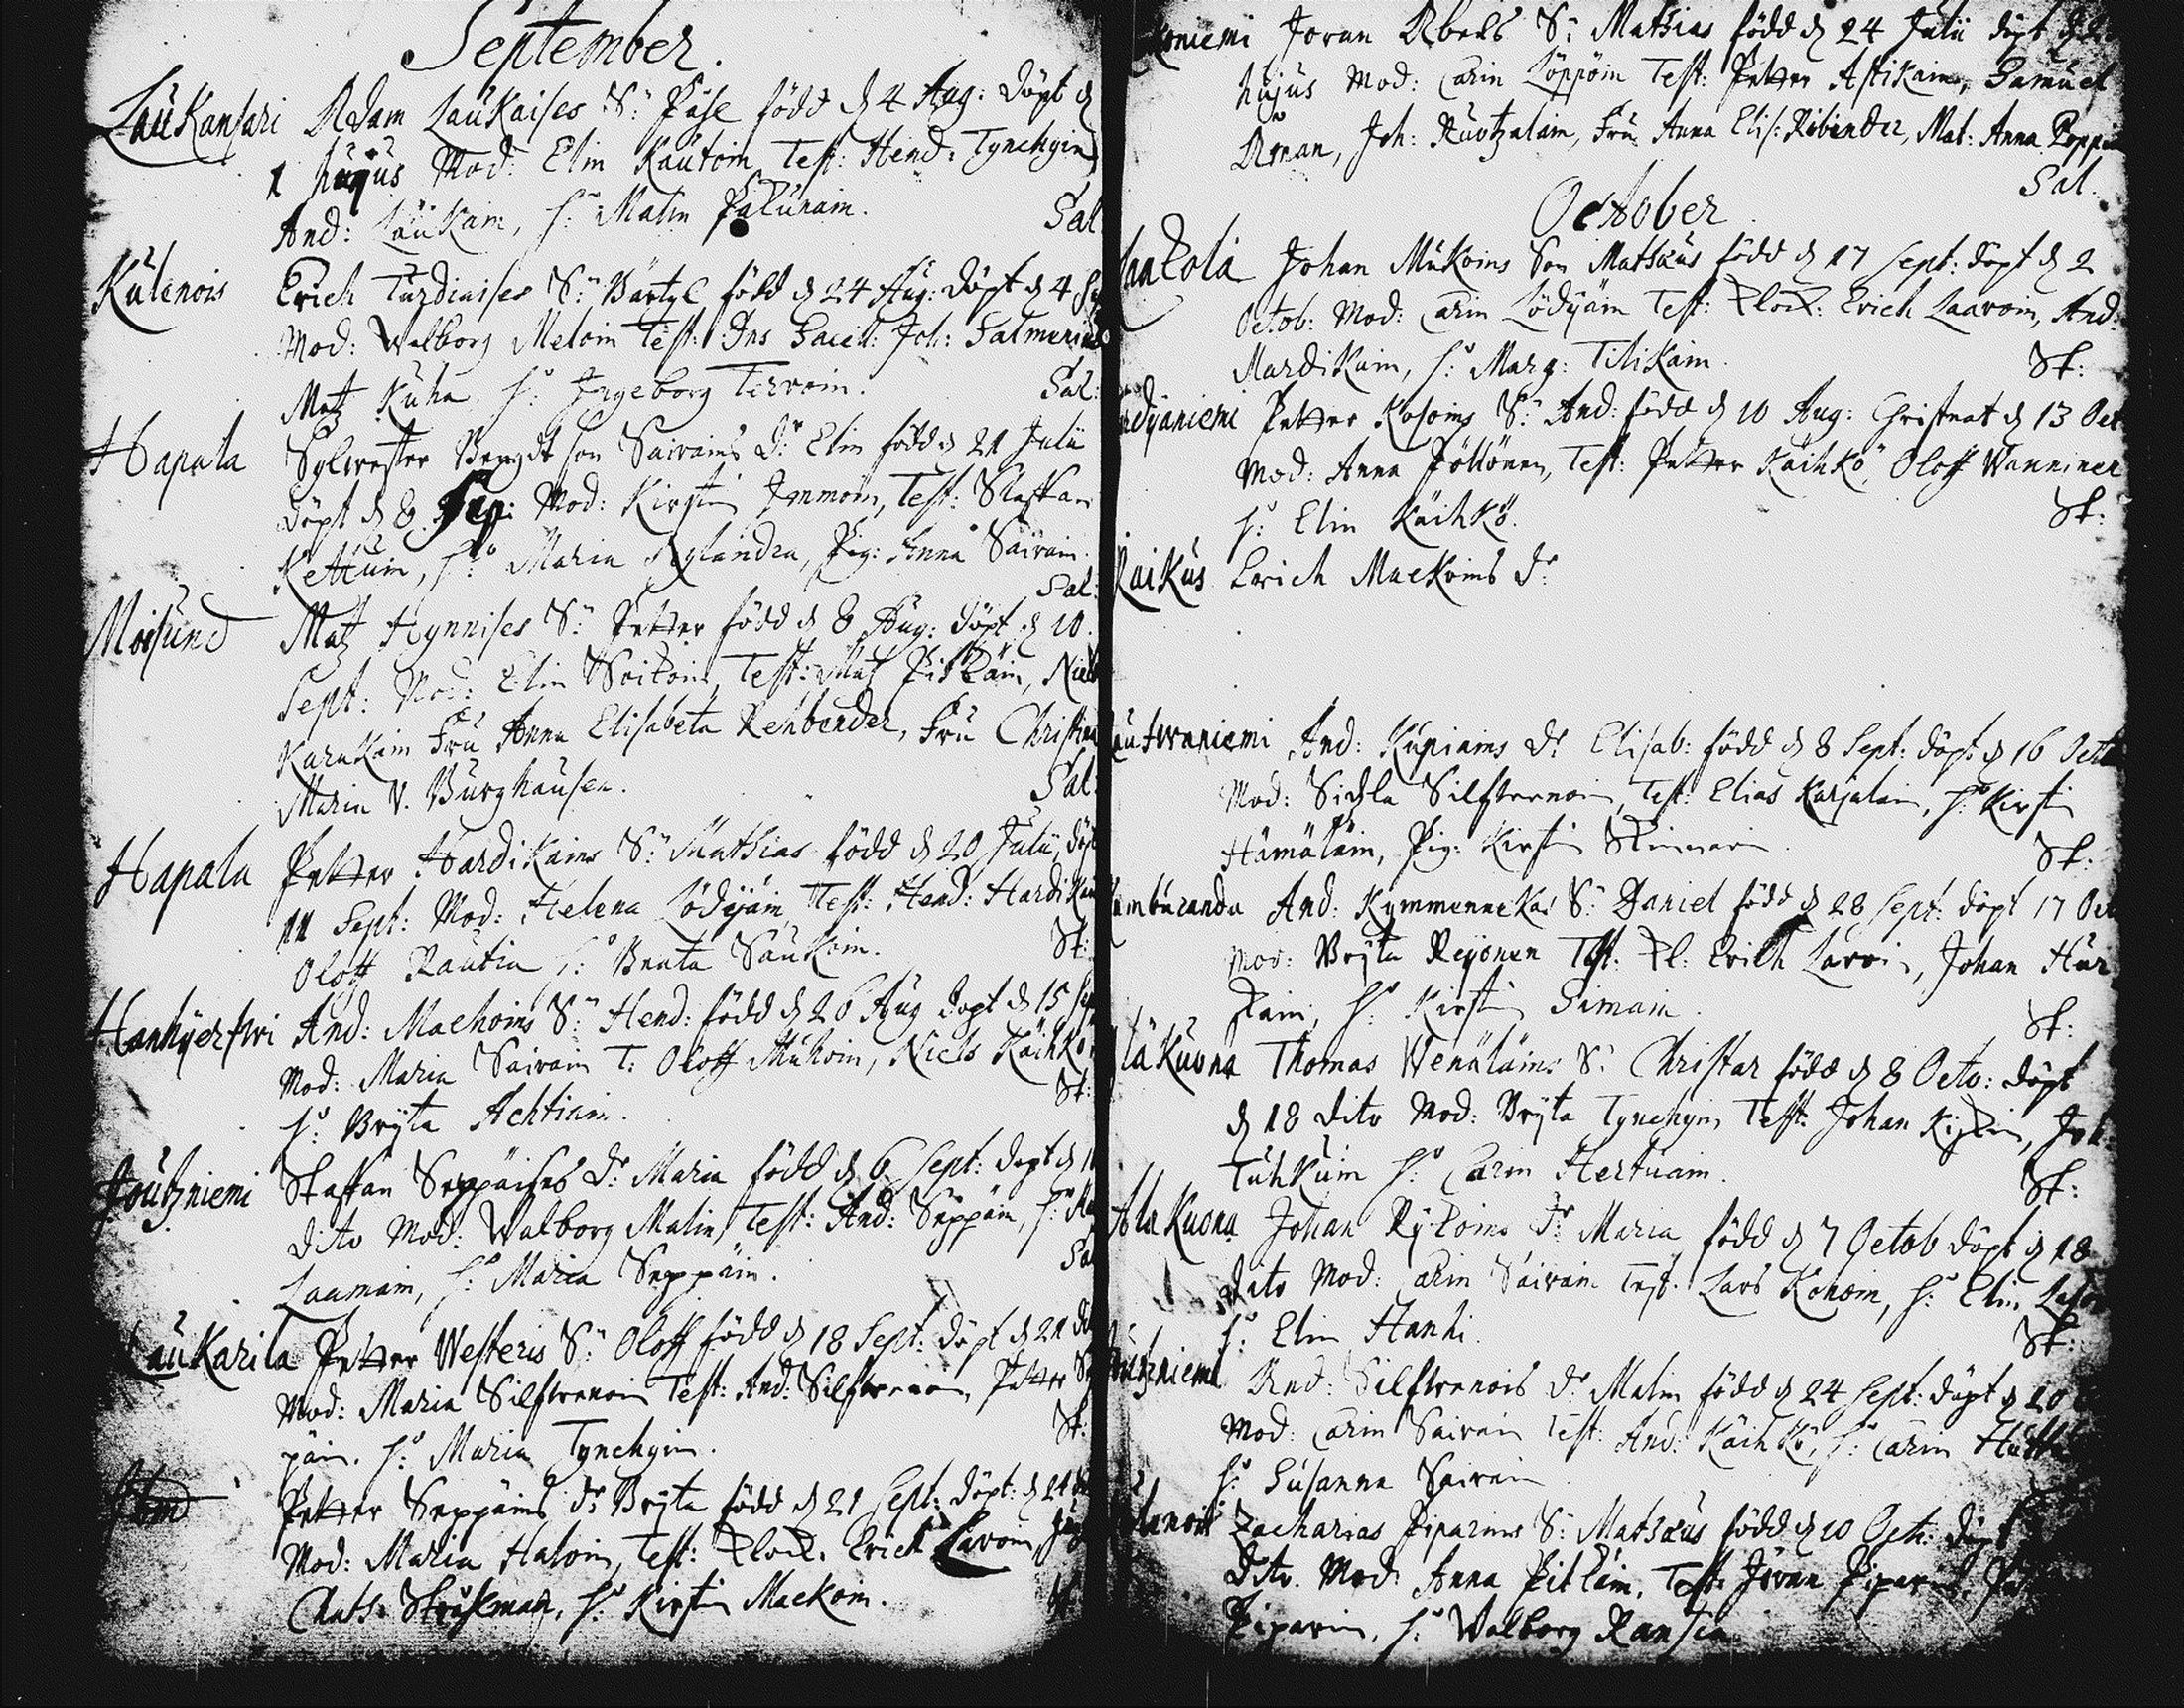 September.
Laukansari Adam Laukaises S:n Påse född d 4 Aug: Döpt d
1 hujus Mod: Elin Kautoin Test: Hend: Tynckyin
And: Laukain, h:o Malin Palunain. Sal
Kulenois Erich Turdiaises S:n Bärtyl född d 24 Aug: Döpt d 4
Mod: Walborg Meloin Test: Dns Sacell: Joh: Salmenius
Matz Kuha h:o Ingeborg Tervoin. Sal:
Hapala Sylvester Bengdt son Sairains D:r Elin född d 21 Julii
döpt d 8 Sep: Mod: Kirstin Immoin, Test: Staffan
Kettuin, h:o Maria Rylandra, Pig: Anna Sairain.
Sal:
Moisund Matz Hynnises S:n Petter född d 8 Aug: döpt d 10.
Sept: Mod: Elin Voitoin, Test: Mat Pitkäin, Niels
Karukain Fru Anna Elisabeta Rehbender, Fru Christina
Maria V. Burghausen. Sal:
Hapala Petter Hardikains S:n Mathias född d 20 Julii, döpt
11 Sept: Mod: Helena Lödyäin, Test: Hend: Hardikain
Oloff Rautia h:o Beata Saukoin. St:
Hanhyerfwi And: Machoins S:n Hend: född d 26 Aug döpt d 15
Mod: Maria Sairain T: Oloff Mukoin, Niels Käihkö
h:o Bryta Achtiain. St:
Joutzniemi Staffan Seppäises D:r Maria född d 6 Sept: döpt d
dito Mod: Walborg Malin, Test: And: Seppäin, h:o
Laamain, h:o Maria Seppäin.
Laukarila Petter Westeris S:n Oloff född d 18 Sept: döpt d 21
Mod: Maria Silfwenoin Test: And: Silfwenoin, Petter Sep
päin. h:o Maria Tynckyin. St:
Petter Seppäins D:r Bryta född d 21 Sept: döpt: d 24
Mod: Maria Haloin, Test: Klock: Erich Lavoin,
Mats: Stråkman, h:o Kirstin Maekoin.
oniemi Joran Abels S:n Mathias född d 24 Julii döpt
hujus Mod: Carin Löppöin Test: Petter Astikain, Samuel
Aman, Joh: Kurtzalain, Fru Anna Elis: Rebinder, Mat: Anna Poppi
Sal.
October
Johan Mukoins Son Mathæus född d 17 Sept: döpt d 2
Octob: Mod: Carin Lödyäin Test: Klock: Erich Laavoin, And:
Mardikain, h:o Marg: Tilikain. St:
dyäniemi Petter Kosoins S:n And: född d 10 Aug: Christnat d 13 Oct
Mod: Anna Pöllönen, Test: Petter Käihkö, Oloff Wanninen
h:o Elin Käihkö. St:
Raikus Erich Maekoins D:r
autwaniemi And: Kupiains D:r Elisab: född d 8 Sept: döpt d 16 Octo
Mod: Sidsla Silfwenoin, Test: Elias Karjalain, h:o Kirstin
Hämäläin, Pig: Kirstin St:
And: Kymmenekas S:n Daniel född d 28 Sept: döpt 17 Oct
Mod: Bryta Reyonen Test: Kl: Erich Lavoin, Johan Hur
kain, h:o Kirstin Simain. St:
läkuona Thomas Wenäläins S:n Christar född d 8 Octo: döpt
d 18 dito Mod: Bryta Tynckyin Test: Johan Kiskin, Joh:
Tuhkuin h:o Carin Hertuain. St:
Alakuona Johan Rytoins D:r Maria född d 7 Octob döpt d 18
dito Mod: Carin Sairain Test: Lars Kohoin, h:o Elin
h:o Elin Hanhi. St:
outzniemi And: Silfwenois D:r Malin född d 24 Sept: döpt d 20
Mod: Carin Sairain Test: And: Käihkö, h:o Carin
h:o Susanna Sairain
Zacharias Piparins S:n Mathæus född d 10 Octo: döpt
Dito. Mod: Anna Pitkäin. Test: Jöran Piparin,
Piparin, h:o Walborg